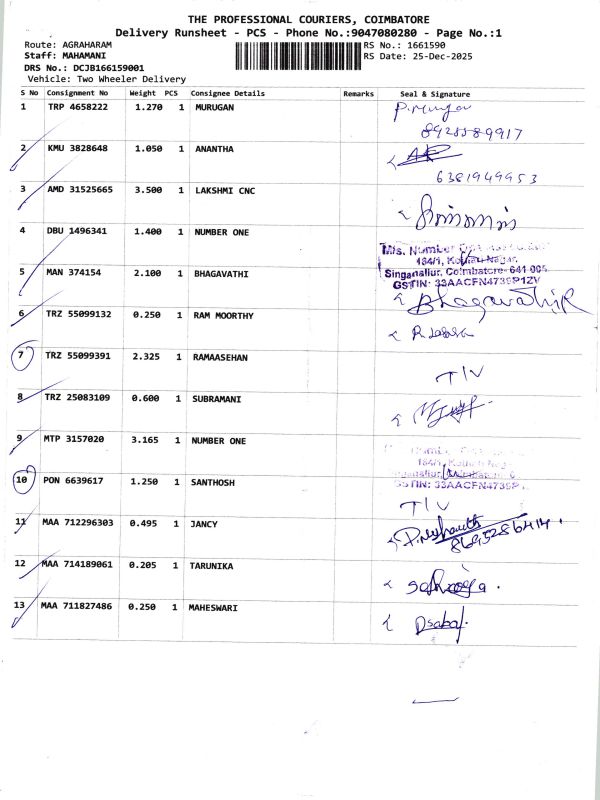 THE PROFESSIONAL COURIERS, COIMBATORE
Delivery Runsheet - PCS - Phone No.:9047080280 - Page No.:1
Route: AGRAHARAM
RS No.: 1661590
Staff: MAHAMANI
RS Date: 25-Dec-2025
DRS No.: DCJB166159001
Vehicle: Two Wheeler Delivery
S No Consignment No Weight PCS Consignee Details Remarks Seal & Signature
1 TRP 4658222 1.270 1 MURUGAN P.Murugan
8925589917
2 KMU 3828648 1.050 1 ANANTHA
6381949953
3 AMD 31525665 3.500 1 LAKSHMI CNC
4 DBU 1496341 1.400 1 NUMBER ONE
M/s. Number
184/1, Nagar,
Singanallur, Coimbatore-641 005
GSTIN: 33AACFN4739P1ZV
5 MAN 374154 2.100 1 BHAGAVATHI Bhagavathi R
6 TRZ 55099132 0.250 1 RAM MOORTHY
7 TRZ 55099391 2.325 1 RAMAASEHAN T/V
8 TRZ 25083109 0.600 1 SUBRAMANI
9 MTP 3157020 3.165 1 NUMBER ONE
GSTIN: 33AACFN4739P
10 PON 6639617 1.250 1 SANTHOSH T/V
11 MAA 712296303 0.495 1 JANCY
8695286414.
12 MAA 714189061 0.205 1 TARUNIKA
13 MAA 711827486 0.250 1 MAHESWARI